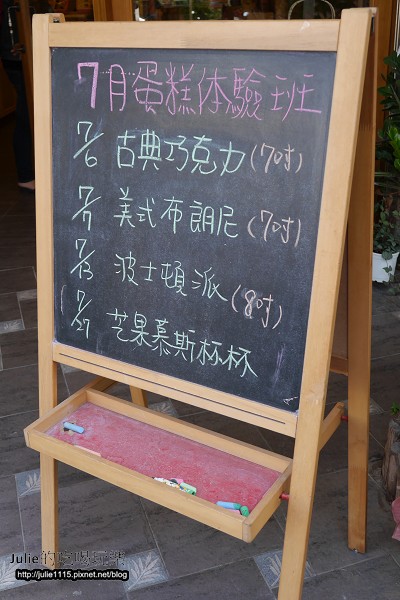 7月蛋糕体驗班
7/6 古典巧克力(7吋)
7/7 美式布朗尼(7吋)
7/13 波士頓派(8吋)
7/27 芒果慕斯杯杯
Julie的吃喝玩樂
http://julie1115.pixnet.net/blog